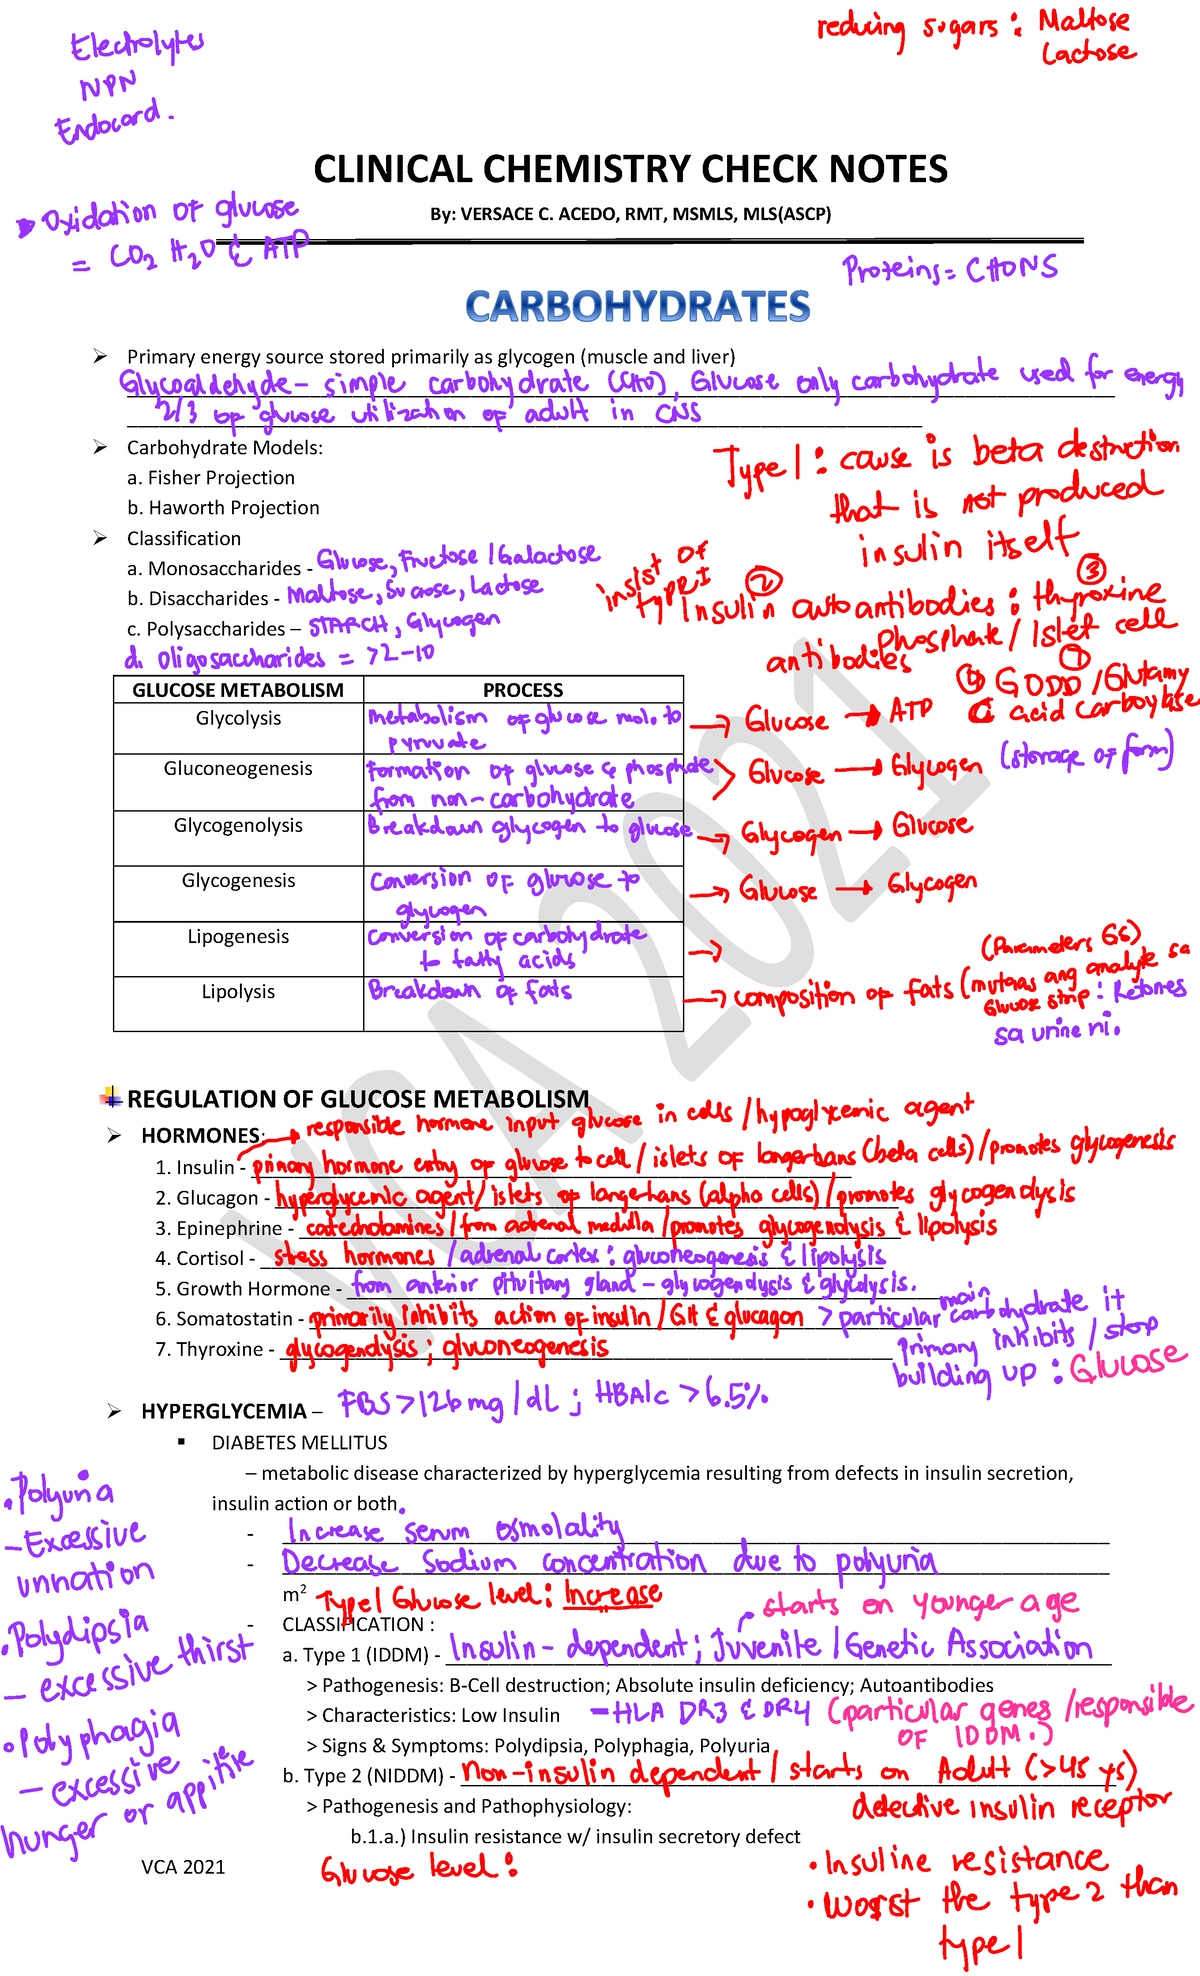 reducing sugars : Maltose
Lactose
Electrolytes
NPN
Endocard.
CLINICAL CHEMISTRY CHECK NOTES
By: VERSACE C. ACEDO, RMT, MSMLS, MLS(ASCP)
Oxidation of glucose
= CO2 H2O & ATP
Proteins = CHONS
CARBOHYDRATES
➢ Primary energy source stored primarily as glycogen (muscle and liver)
Glycoaldehyde - simple carbohydrate (CHO), Glucose only carbohydrate used for energy
2/3 of glucose utilization of adult in CNS
➢ Carbohydrate Models:
a. Fisher Projection
b. Haworth Projection
Type 1 : cause is beta destruction
that is not produced
insulin itself
➢ Classification
a. Monosaccharides - Glucose, Fructose / Galactose
b. Disaccharides - Maltose, Sucrose, Lactose
c. Polysaccharides – STARCH, Glycogen
d. Oligosaccharides = >2-10
of
type I
② Insulin autoantibodies : ③ thyroxine
phosphate / Islet cell
antibodies
④ GODD / Glutamy ①
acid carboylase
GLUCOSE METABOLISM PROCESS
Glycolysis metabolism of glucose mol. to → Glucose → ATP
pyruvate
Gluconeogenesis Formation of glucose & phosphate > Glucose → Glycogen (storage of form)
from non-carbohydrate
Glycogenolysis Breakdown glycogen to glucose → Glycogen → Glucose
Glycogenesis Conversion of glucose to → Glucose → Glycogen
glycogen
Lipogenesis conversion of carbohydrate →
to fatty acids
Lipolysis Breakdown of fats → composition of fats
(Parameters GS)
(mutaas ang analyte sa
Glucose strip : Ketones
sa urine ni.
REGULATION OF GLUCOSE METABOLISM
➢ HORMONES: → responsible hormone input glucose in cells / hypoglycemic agent
1. Insulin - primary hormone entry of glucose to cell / islets of langerhans (beta cells) / promotes glycogenesis
2. Glucagon - hyperglycemic agent / islets of langerhans (alpha cells) / promotes glycogenolysis
3. Epinephrine - catecholamines / from adrenal medulla / promotes glycogenolysis & lipolysis
4. Cortisol - stress hormones / adrenal cortex : gluconeogenesis & lipolysis
5. Growth Hormone - from anterior pituitary gland - glycogenolysis & glycolysis.
6. Somatostatin - primarily inhibits action of insulin / GH & glucagon > particular main carbohydrate it
primary inhibits / stop
building up : Glucose
7. Thyroxine - glycogenolysis ; gluconeogenesis
➢ HYPERGLYCEMIA – FBS >126 mg/dL ; HBA1c >6.5%
▪ DIABETES MELLITUS
– metabolic disease characterized by hyperglycemia resulting from defects in insulin secretion,
insulin action or both.
- Increase serum osmolality
- Decrease Sodium concentration due to polyuria
m2 Type 1 Glucose level : Increase
starts on younger age
- CLASSIFICATION :
a. Type 1 (IDDM) - Insulin-dependent; Juvenite / Genetic Association
> Pathogenesis: B-Cell destruction; Absolute insulin deficiency; Autoantibodies
> Characteristics: Low Insulin - HLA DR3 & DR4 (particular genes / responsible
OF IDDM.)
> Signs & Symptoms: Polydipsia, Polyphagia, Polyuria
b. Type 2 (NIDDM) - Non-insulin dependent / starts on Adult (>45 ys)
> Pathogenesis and Pathophysiology:
defective insulin receptor
b.1.a.) Insulin resistance w/ insulin secretory defect
Glucose level :
• Insuline resistance
• Worst the type 2 than
type 1
• Polyuria
- Excessive
urination
• Polydipsia
- excessive thirst
• Polyphagia
- excessive
hunger or appitite
VCA 2021
VCA 2021